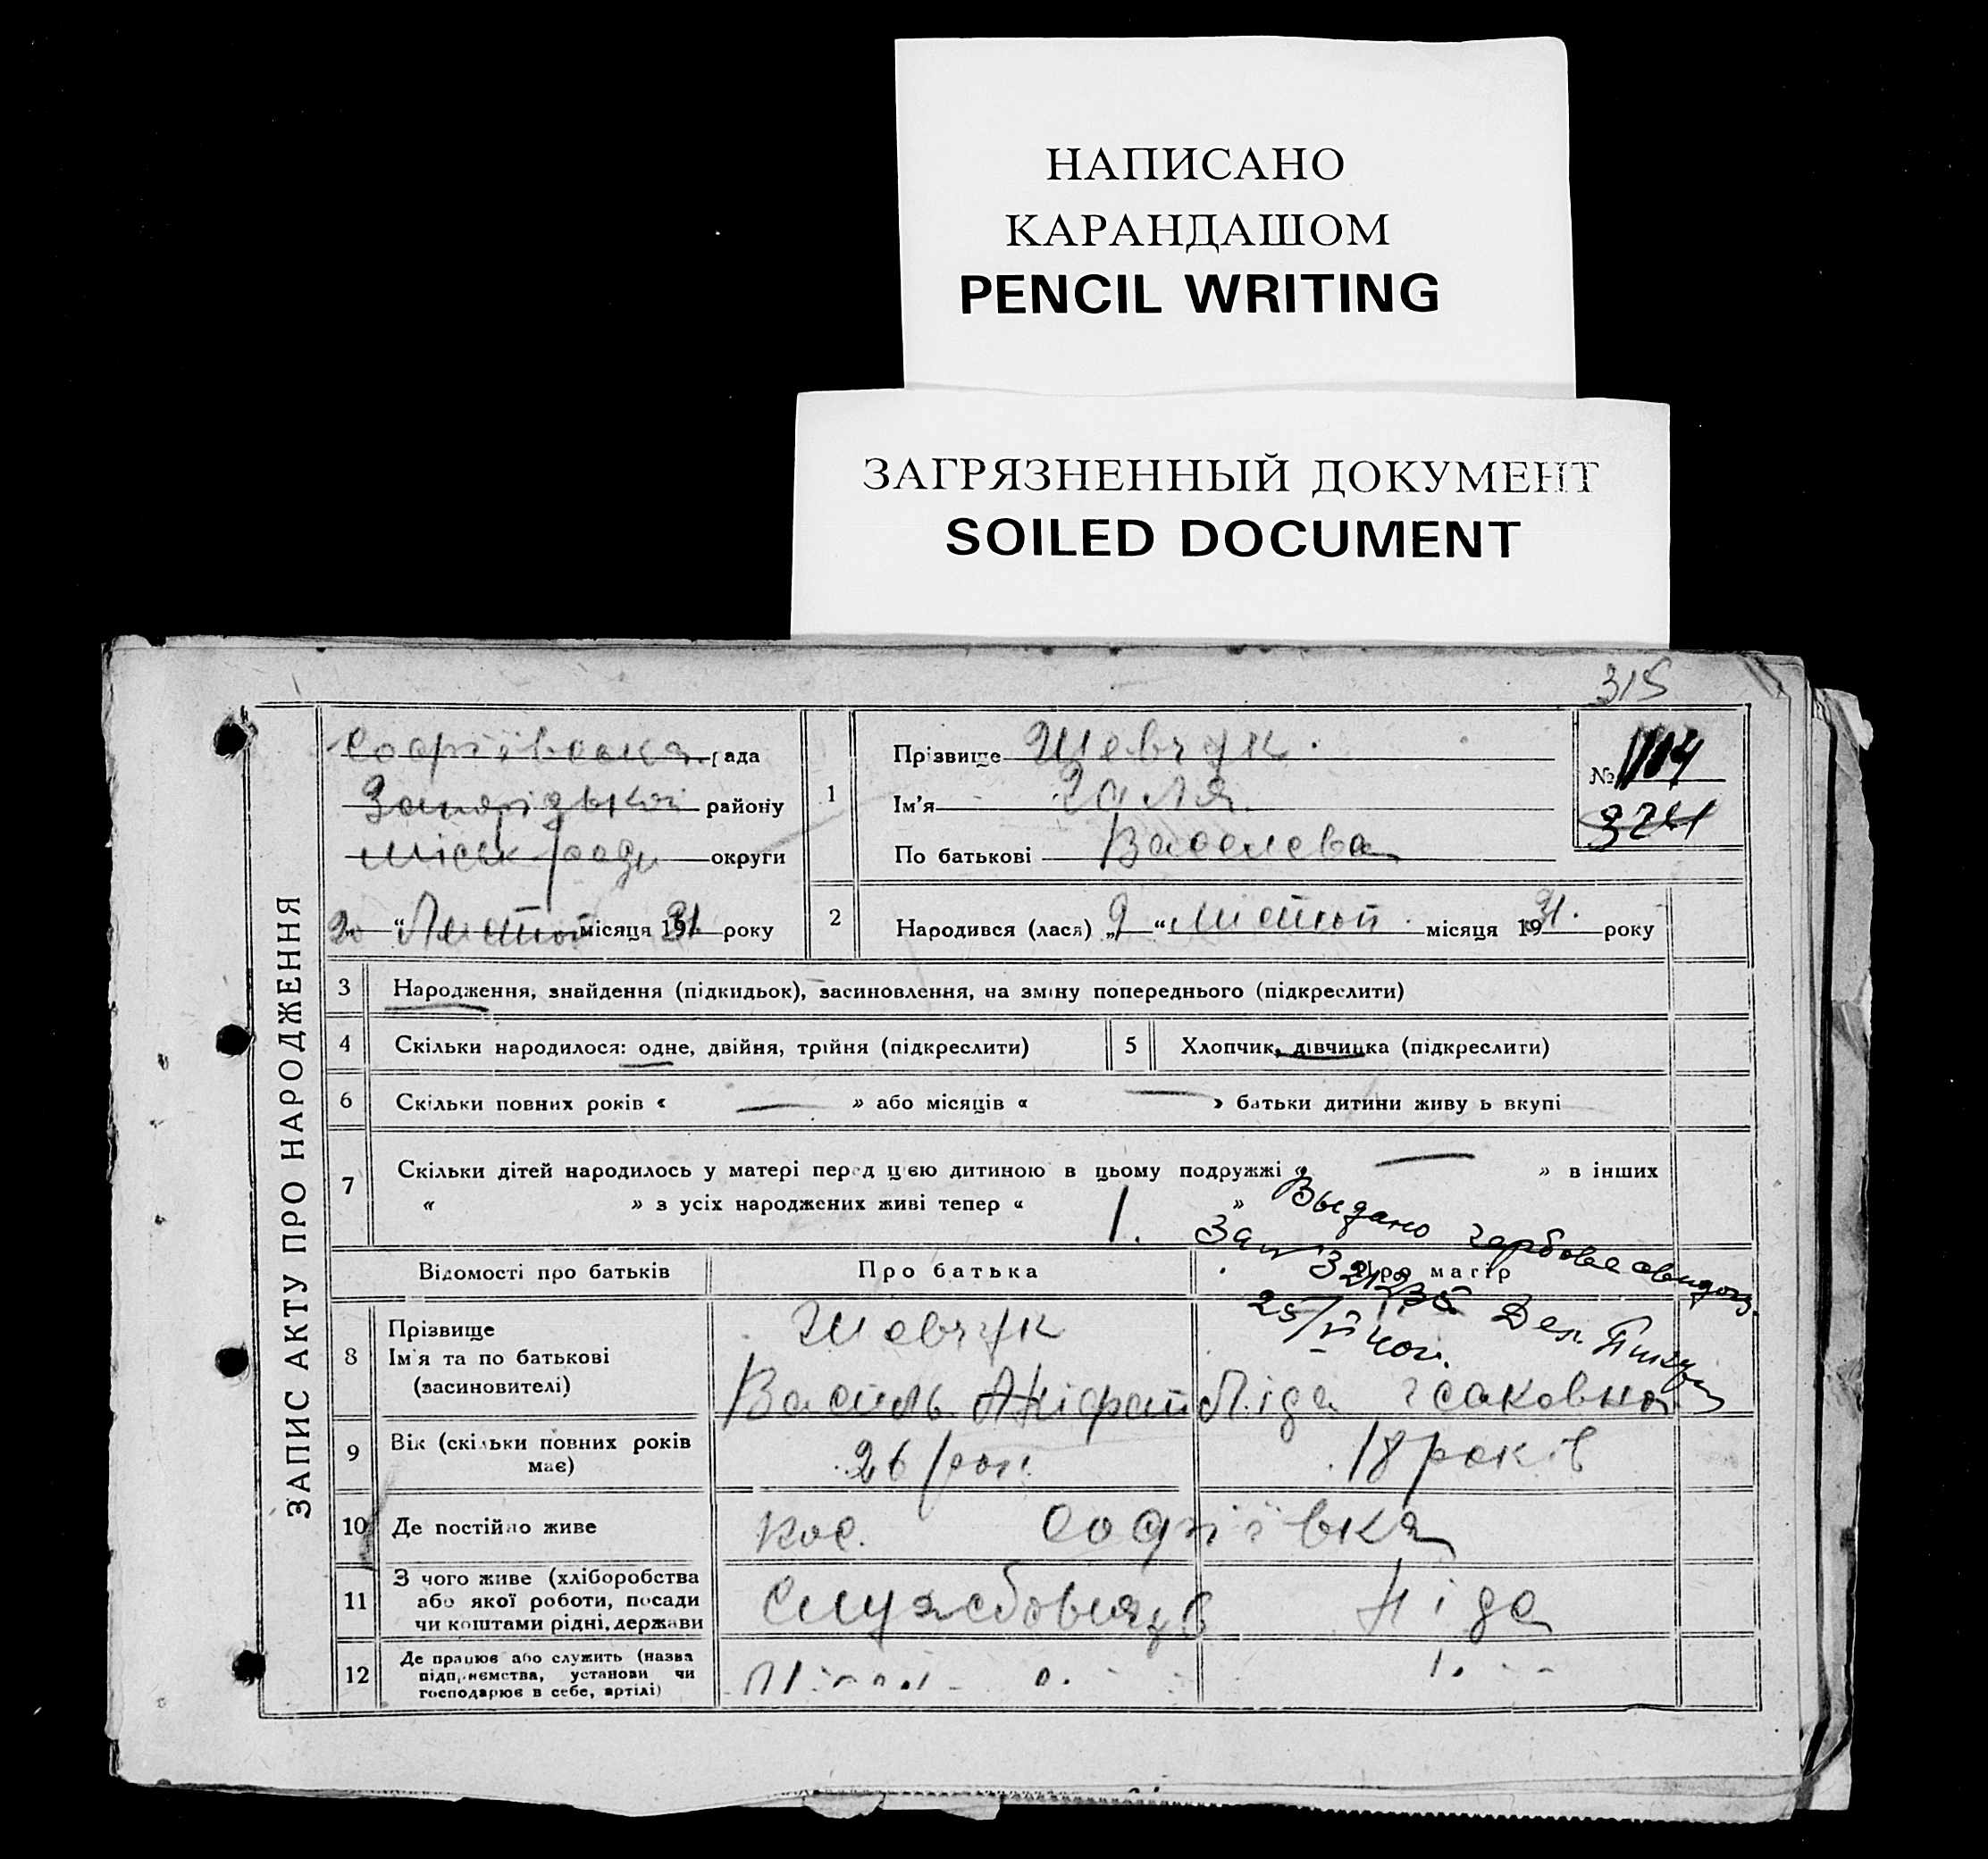 НАПИСАНО
КАРАНДАШОМ
PENCIL WRITING
ЗАГРЯЗНЕННЫЙ ДОКУМЕНТ
SOILED DOCUMENT
315
ЗАПИС АКТУ ПРО НАРОДЖЕННЯ
Софіївська рада
району
округи
20 " місяця 1931 року
1
Прізвище Шевчук
Ім'я Галя
По батькові Васелева
№ 1104
3241
2
Народився (лася) „9 “ місяця 1931. року
3 Народження, знайдення (підкидьок), засиновлення, на зміну попереднього (підкреслити)
4 Скільки народилося: одне, двійня, трійня (підкреслити)
5 Хлопчик, дівчинка (підкреслити)
6 Скільки повних років « — » або місяців « — » батьки дитини живуть вкупі
7 Скільки дітей народилось у матері перед цією дитиною в цьому подружжі « — » в інших
« » з усіх народжених живі тепер « 1. »
Выдано
Відомості про батьків Про батька Про матір
25/VI
8 Прізвище
Ім'я та по батькові
(засиновителі)
Шевчук
Василь
Ліда Ісаковна
9 Вік (скільки повних років
має)
26 рок.
18 років
10 Де постійно живе
кол. Софіївка
11 З чого живе (хліборобства
або якої роботи, посади
чи коштами рідні, держави
Службовець
12 Де працює або служить (назва
підприємства, установи чи
господарює в себе, артілі)